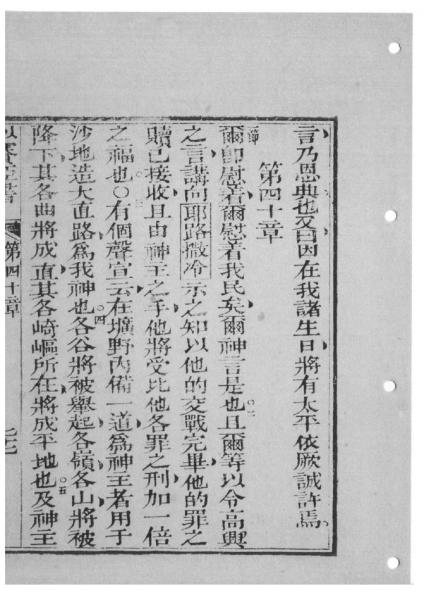 言乃恩典也又曰因在我諸生日將有太平依厥誠許焉
第四十章
一節
爾即慰着爾慰着我民矣爾神言是也〇二且爾等以令高興
之言講向耶路撒冷示之知以他的交戰完畢他的罪之
贖已接收且由神主之手他將受比他各罪之刑加一倍
之福也〇三有個聲宣云在壙野丙備一道為神主者用于
沙地造大直路為我神也〇四各谷將被舉起各嶺各山將被
降下其各曲將成直其各崎嶇所在將成平地也〇五及神主
以賽亞書 第四十章 七七